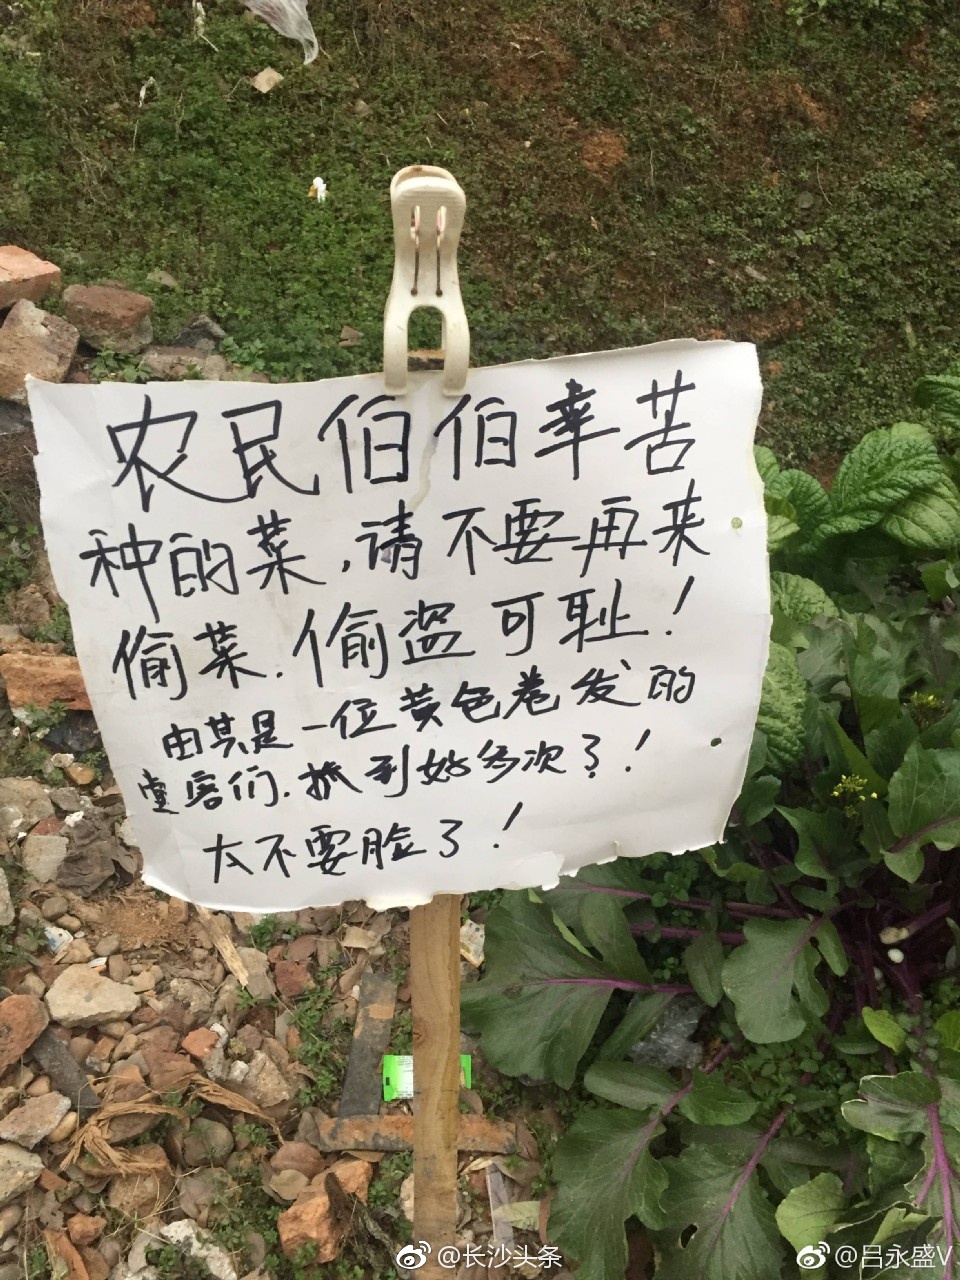 农民伯伯幸苦
种的菜,请不要再来
偷菜.偷盗可耻!
由其是一位黄色卷发的
堂客们.抓到好多次了!
太不要脸了!
@长沙头条
@吕永盛V